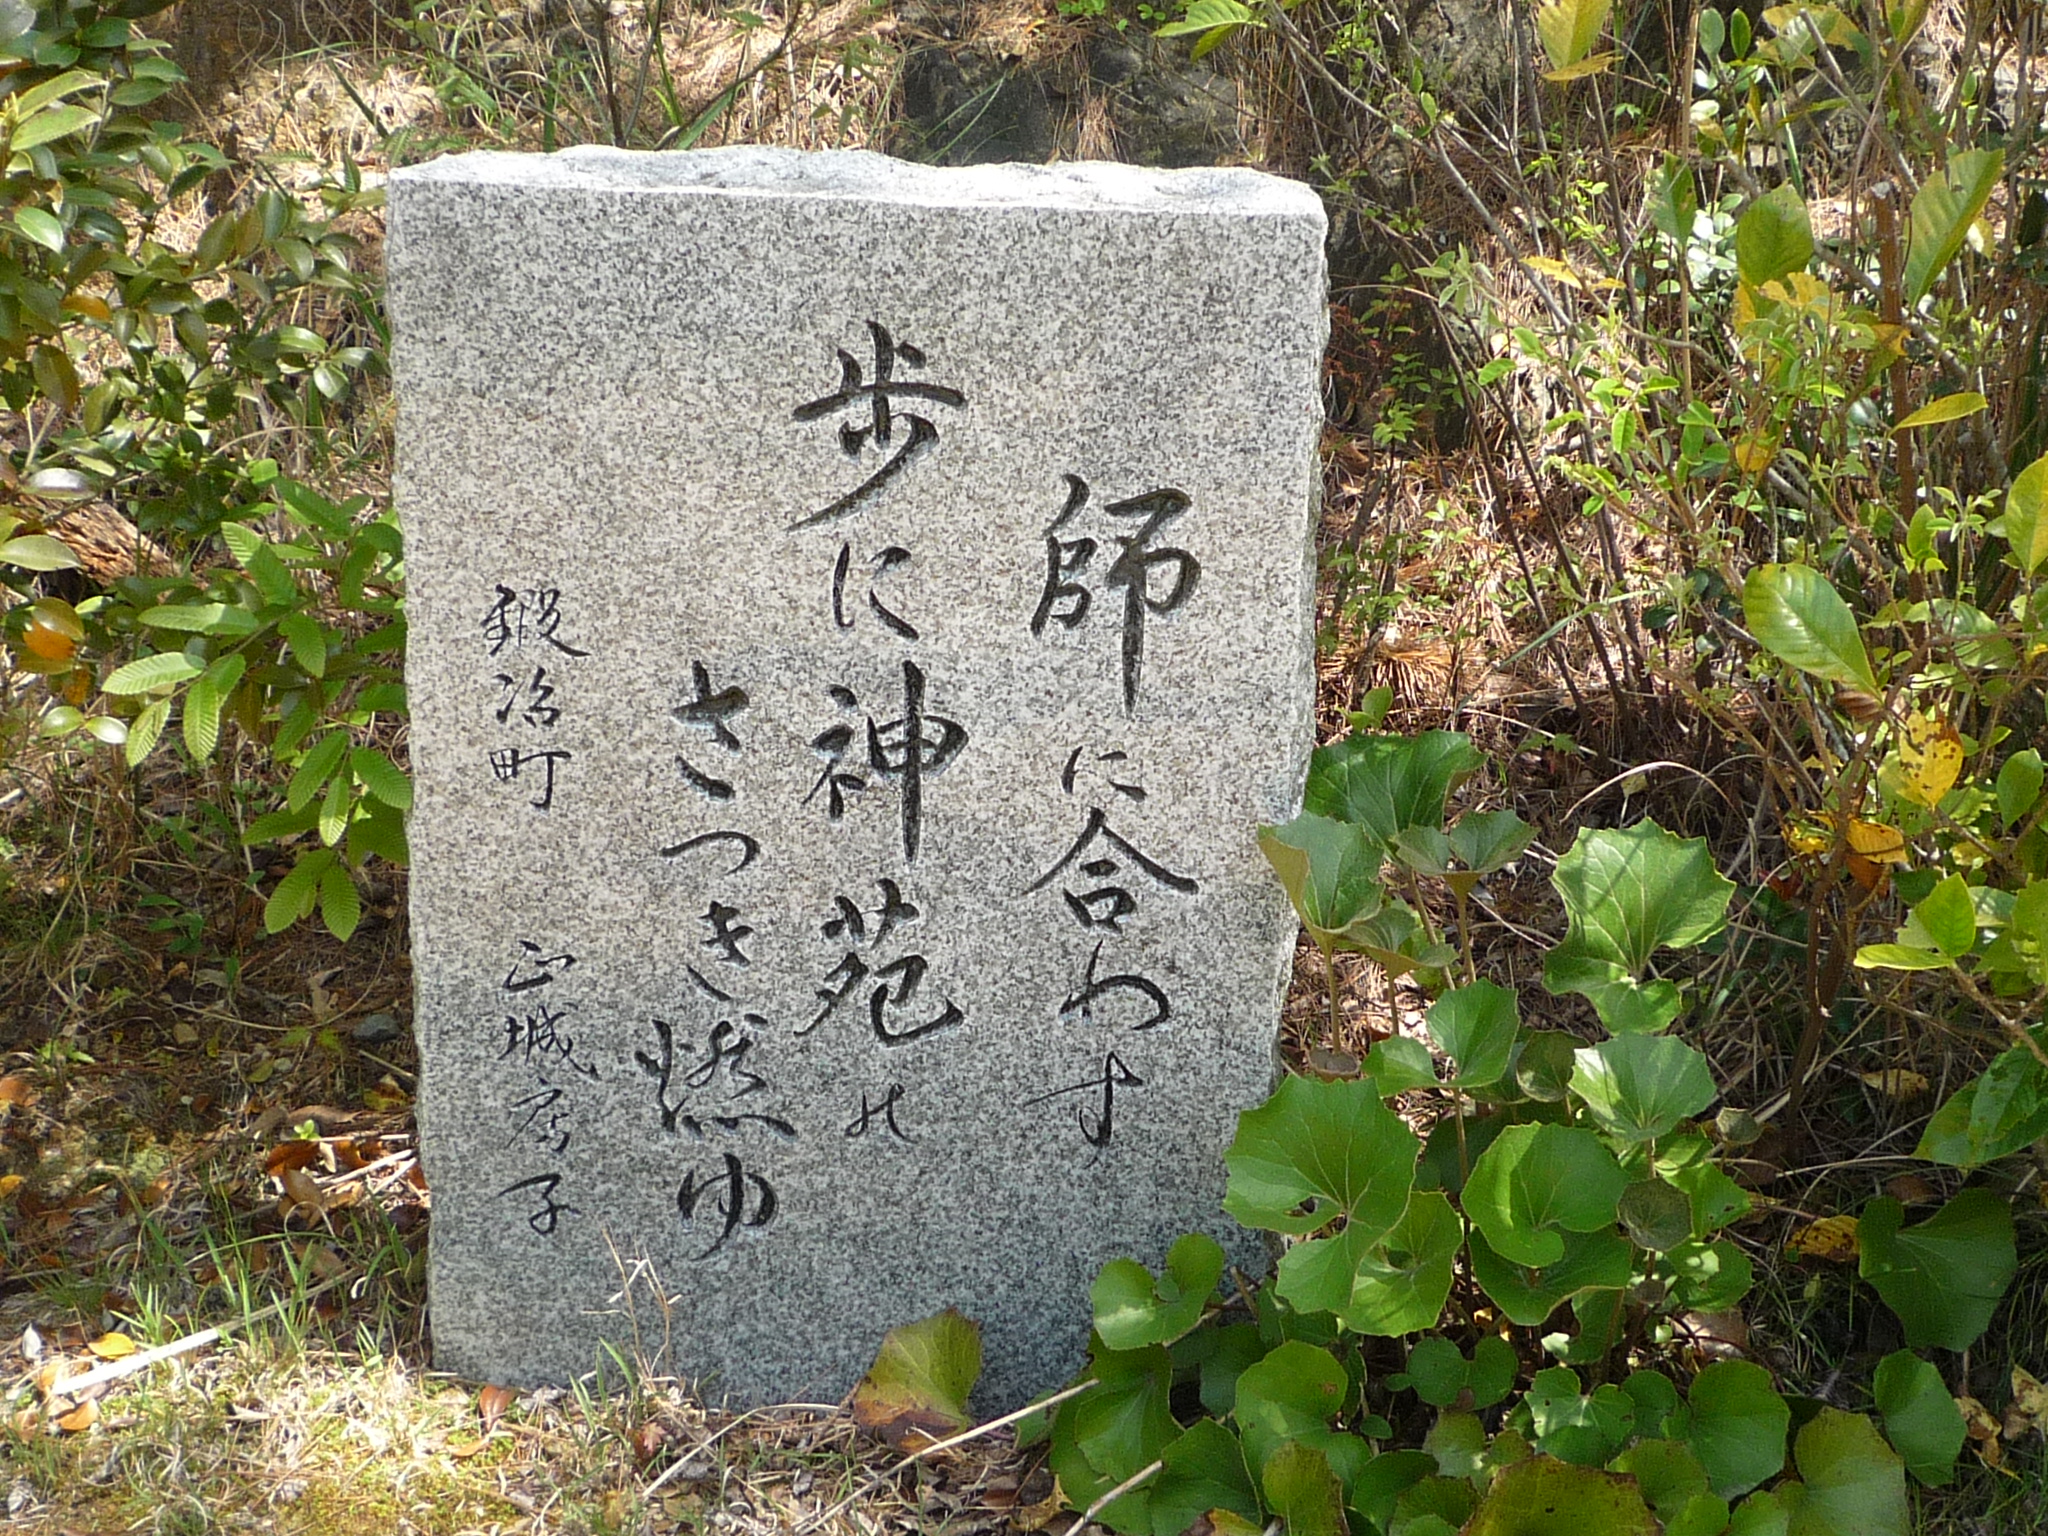 師に合わす
歩に神苑の
さつき燃ゆ
鍛冶町 正城房子